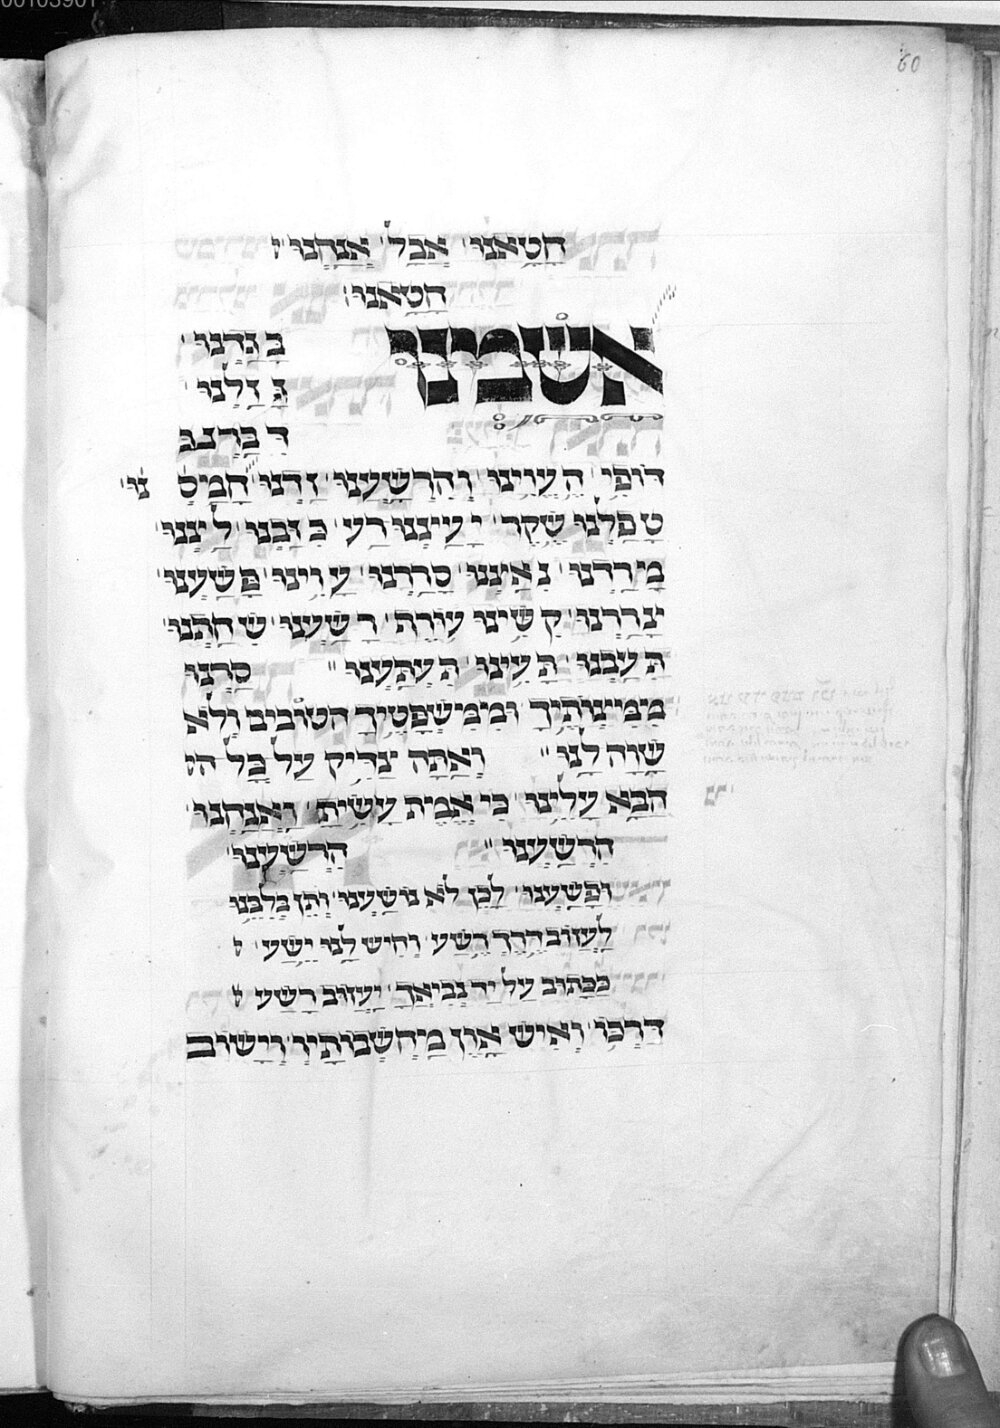 60
חָטָאנוּ אֲבָל אֲנַחְנוּ
חָטָאנוּ׃
אשמנו
בָּגַדְנוּ
גָּזַלְנוּ
דִּבַּרְנוּ
דוֹפִי הֶעֱוִינוּ וְהִרְשַׁעְנוּ זַדְנוּ חָמַסְנוּ
טָפַלְנוּ שֶׁקֶר יָעַצְנוּ רַע כִּזַּבְנוּ לַצְנוּ
מָרַדְנוּ נִאַצְנוּ סָרַרְנוּ עָוִינוּ פָּשַׁעְנוּ
צָרַרְנוּ קִשִּׁינוּ עוֹרֶף רָשַׁעְנוּ שִׁחַתְנוּ
תִּעַבְנוּ תָּעִינוּ תִּעְתָּעְנוּ סַרְנוּ
מִמִּצְוֹתֶיךָ וּמִמִּשְׁפָּטֶיךָ הַטוֹבִים וְלֹא
שָׁוָה לָנוּ וְאַתָּה צַדִּיק עַל כָּל
הַבָּא עָלֵינוּ כִּי אֱמֶת עָשִׂיתָ וַאֲנַחְנוּ
הִרְשָׁעְנוּ הִרְשַׁעְנוּ
וּפָשַׁעְנוּ לָכֵן לֹא נוֹשַׁעְנוּ וְתֵן בְּלִבֵּנוּ
לַעֲזוֹב דֶּרֶךְ רֶשַׁע וְחִישׁ לָנוּ יֶשַׁע
כַּכָּתוּב עַל יַד נְבִיאֶךָ יַעֲזוֹב רָשָׁע
דַּרְכּוֹ וְאִישׁ אָוֶן מַחְשְׁבוֹתָיו וְיָשׁוֹב